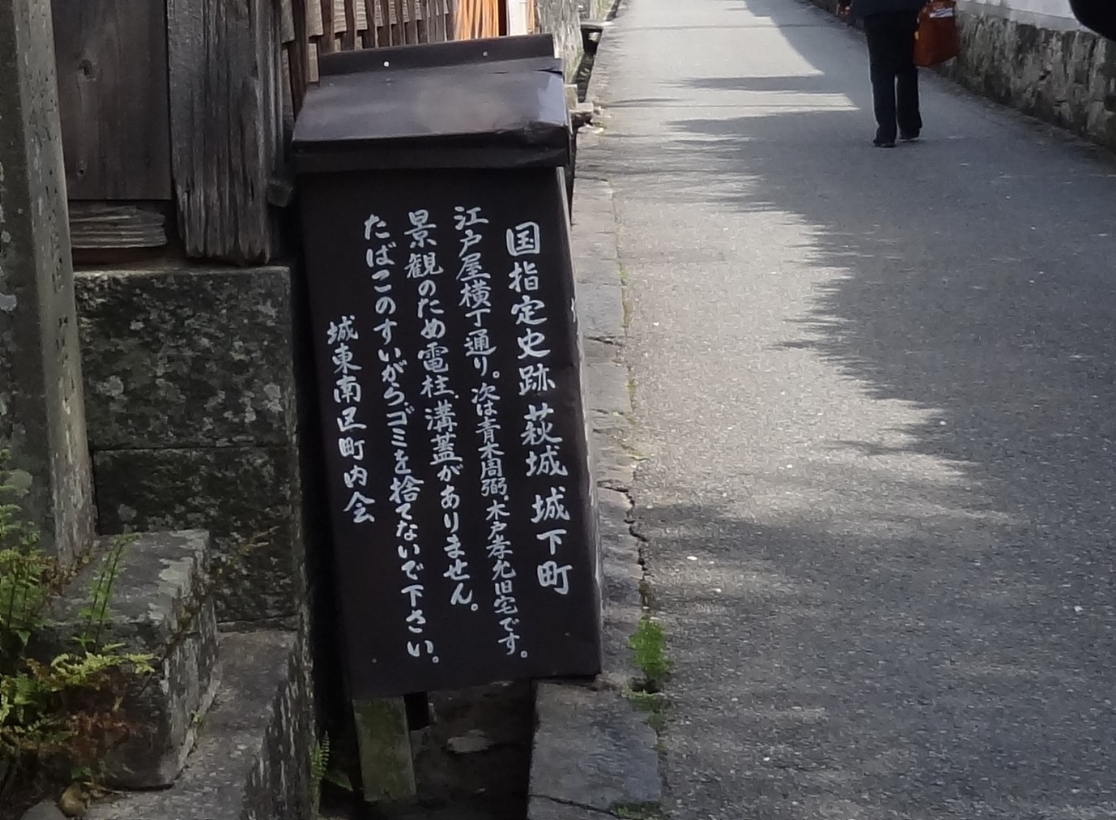 国指定史跡 萩城 城下町
江戸屋横丁通り。次は青木周弼、木戸孝允旧宅です。
景観のため電柱、溝蓋がありません。
たばこのすいがら、ゴミを捨てないで下さい。
城東南区町内会